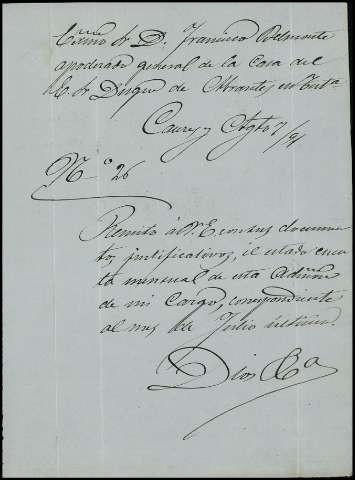 Excmo Sr D. Francisco Belmonte
apoderado general de la Casa del
E. Sr Duque de Abrantes en Turta.
Caure y Agto 7/91
No 26
Remito á V.E con sus documen
tos justificativos, el estado cuen
ta mensual de esta Admon
de mi Cargo, correspondiente
al mes de Julio último.
Dios &a